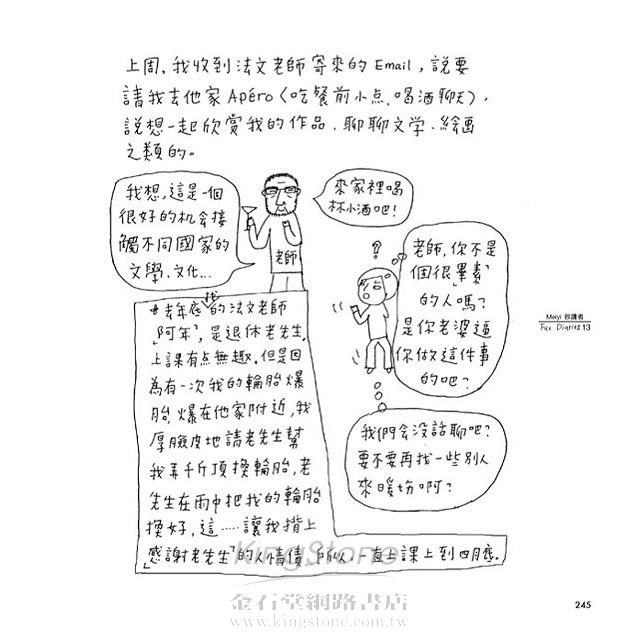 上周,我收到法文老師寄來的Email,說要
請我去他家Apéro(吃餐前小点,喝酒聊天),
說想一起欣賞我的作品、聊聊文学、絵画
之類的。
我想,這是一個
很好的机会接
觸不同國家的
文學、文化...
老師
來家裡喝
杯小酒吧!
?
老師,你不是
個很「畢素」
的人嗎?
是你老婆逼
你做這件事
的吧?
我們会没話聊吧?
要不要再找一些別人
來暖場啊?
去年底找的法文老師
「阿年」,是退休老先生,
上課有点無趣,但是因
為有一次我的輪胎爆
胎,爆在他家附近,我
厚臉皮地請老先生幫
我弄千斤頂換輪胎,老
先生在雨中把我的輪胎
換好,這……讓我揹上
「感謝老先生」的人情債,所以,一直上課上到四月底。
Meiyi 致讀者
Fee Diaries 13
KingStone
金石堂網路書店
www.kingstone.com.tw
245